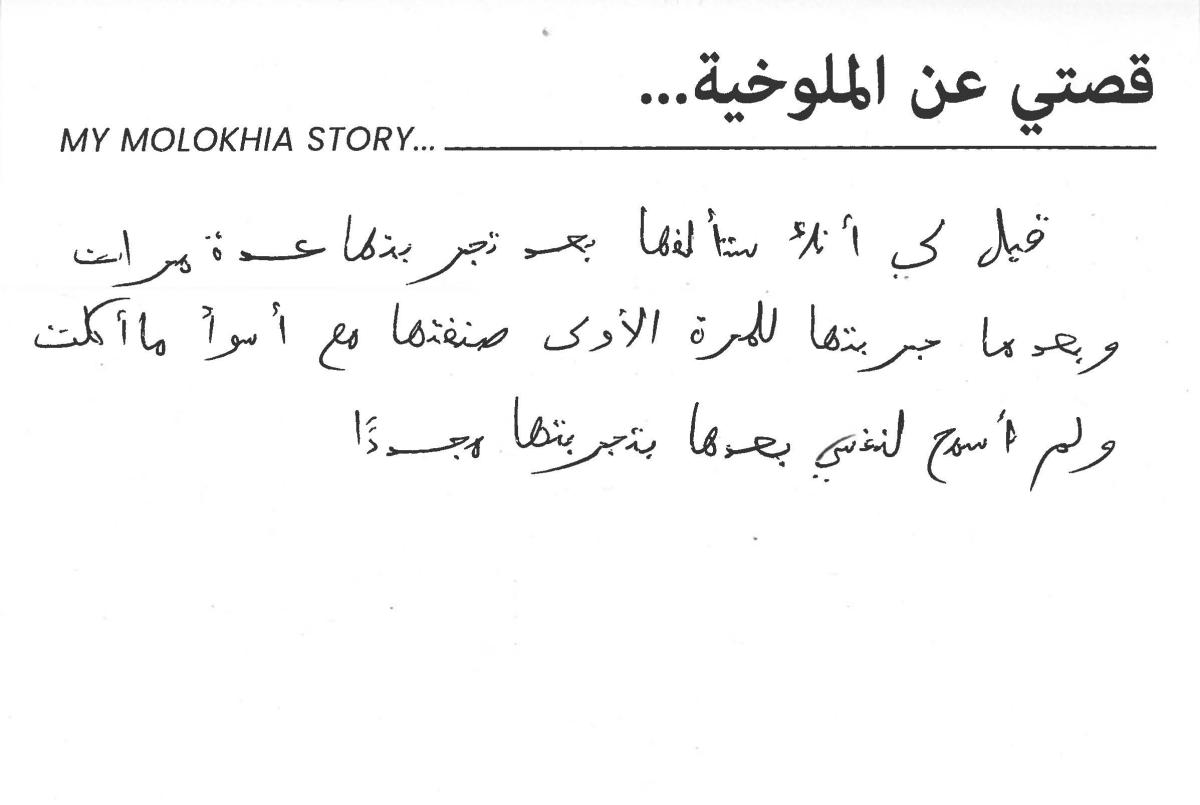 قصتي عن الملوخية...
MY MOLOKHIA STORY...
قيل لي أنك ستألفها بعد تجربتها عدة مرات
وبعدما جربتها للمرة الأولى صنفتها مع أسوأ ما أكلت
ولم أسمح لنفسي بعدها بتجربتها مجددًا